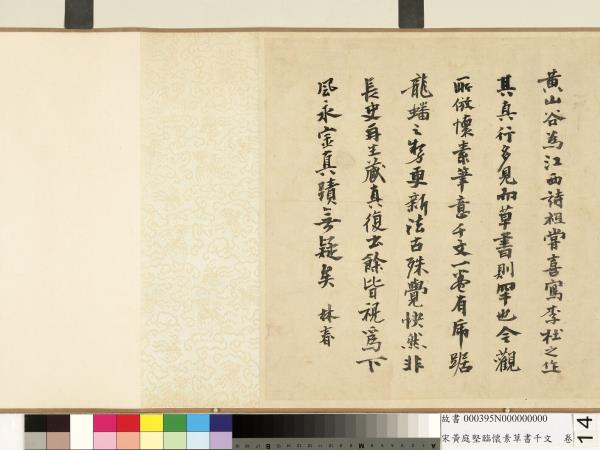 黃山谷為江西詩祖嘗喜寫李杜之作
其真行多見而草書則罕也今觀
所倣懷素筆意千文一卷有席踞
龍蟠之勢更新法古殊覺怏然非
長史再生藏真復出餘皆視為下
風永寔真蹟無疑矣 林春
故書 000395N000000000
宋黃庭堅臨懷素草書千文 卷
14